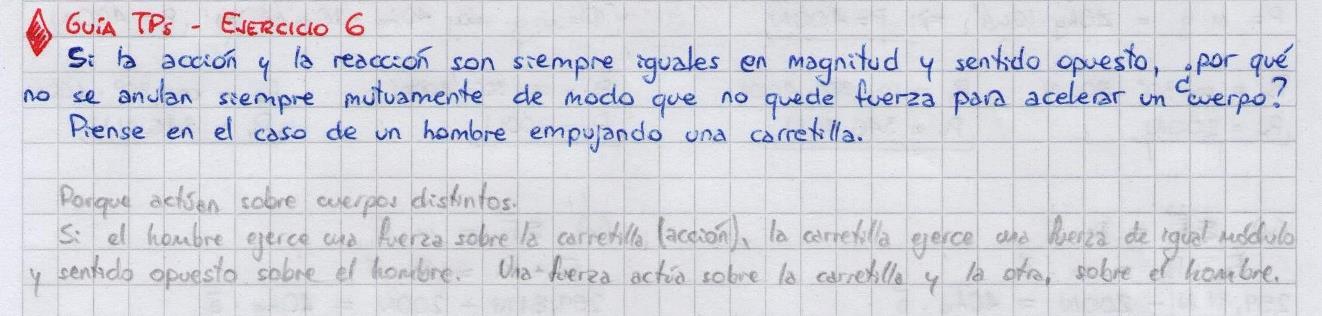 GUÍA TPs - EJERCICIO 6
Si la acción y la reacción son siempre iguales en magnitud y sentido opuesto, ¿por qué
no se anulan siempre mutuamente de modo que no quede fuerza para acelerar un cuerpo?
Piense en el caso de un hombre empujando una carretilla.
Porque actúan sobre cuerpos distintos.
Si el hombre ejerce una fuerza sobre la carretilla (acción), la carretilla ejerce una fuerza de igual módulo
y sentido opuesto sobre el hombre. Una fuerza actúa sobre la carretilla y la otra, sobre el hombre.